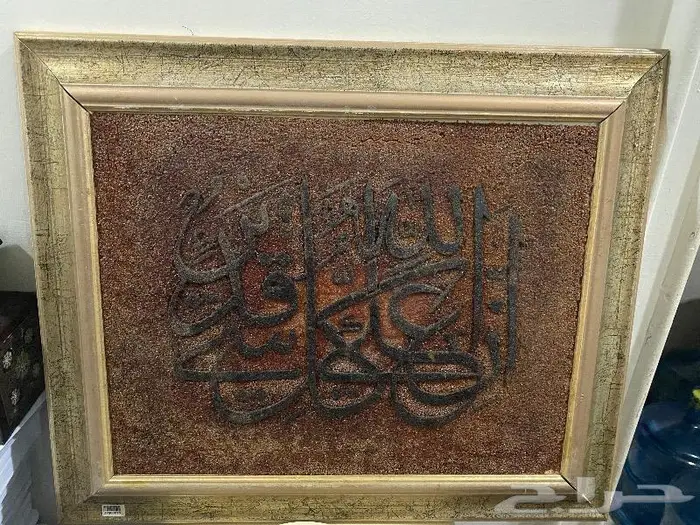 إن الله على كل شيء قدير
حراج